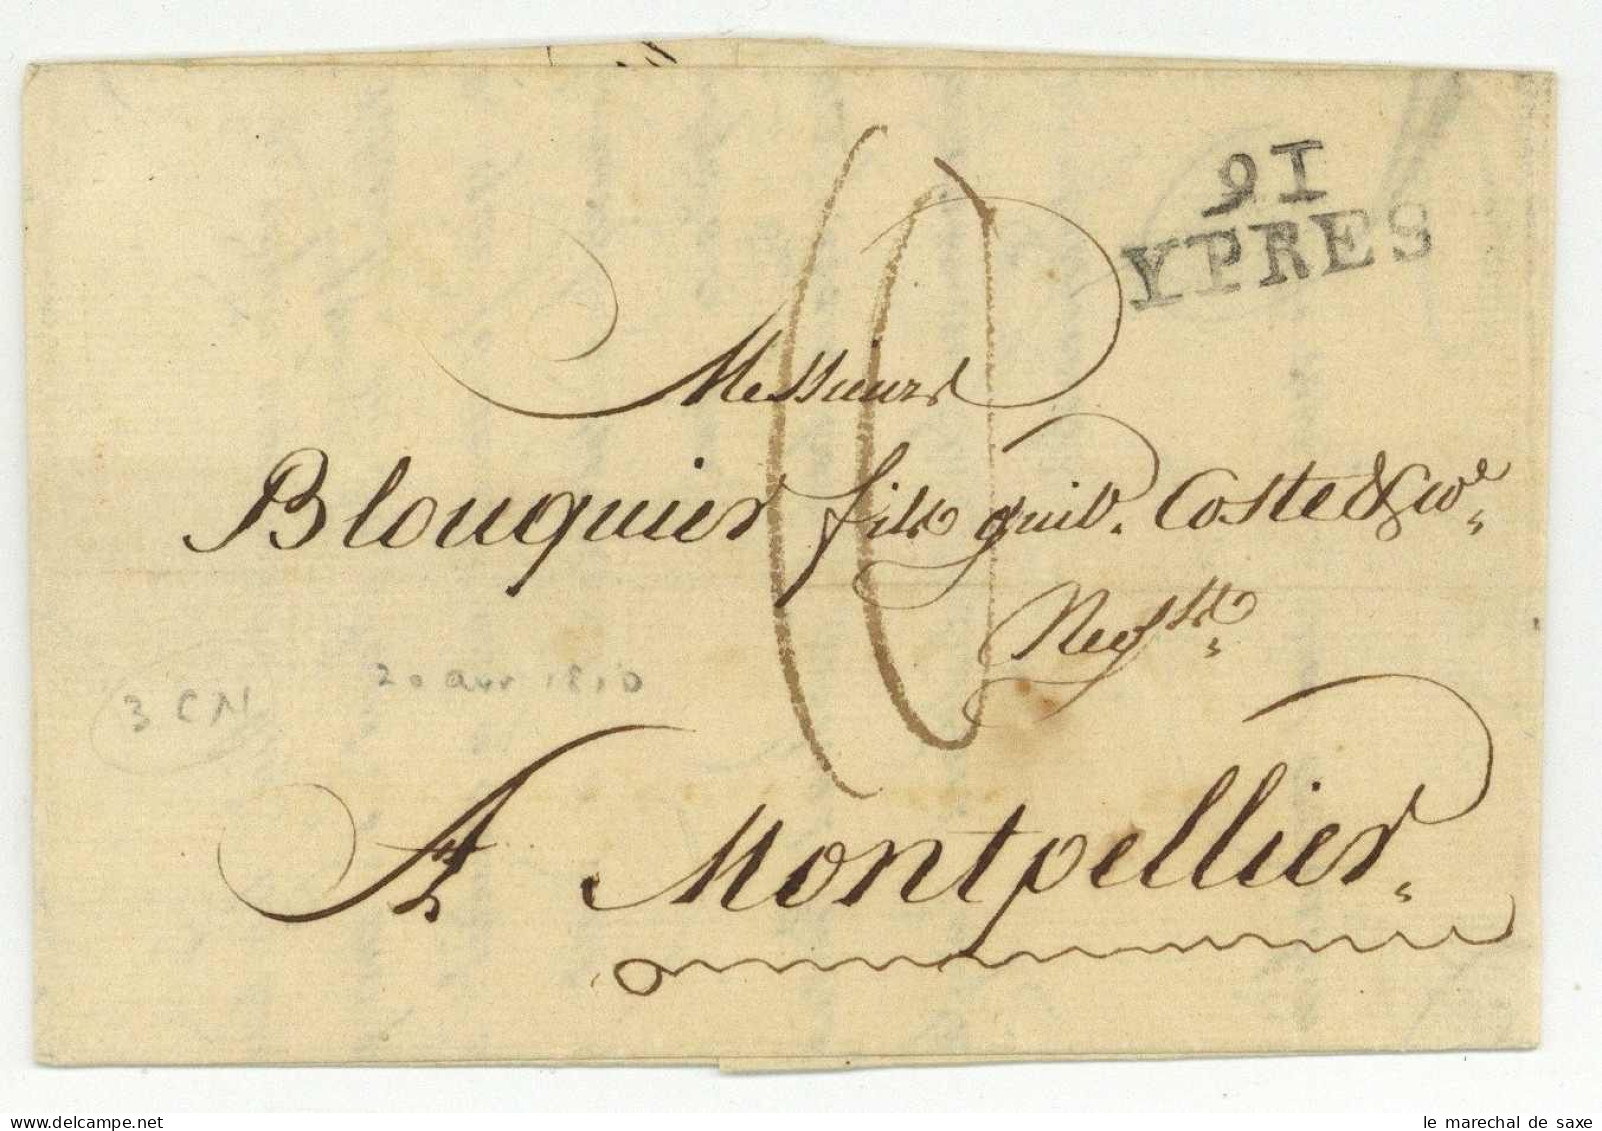 91
YPRES
Messieurs
Blouquier fils quib. Coste & Cie
Negts
3 CN
20 avr 1810
A Montpellier.
le marechal de saxe